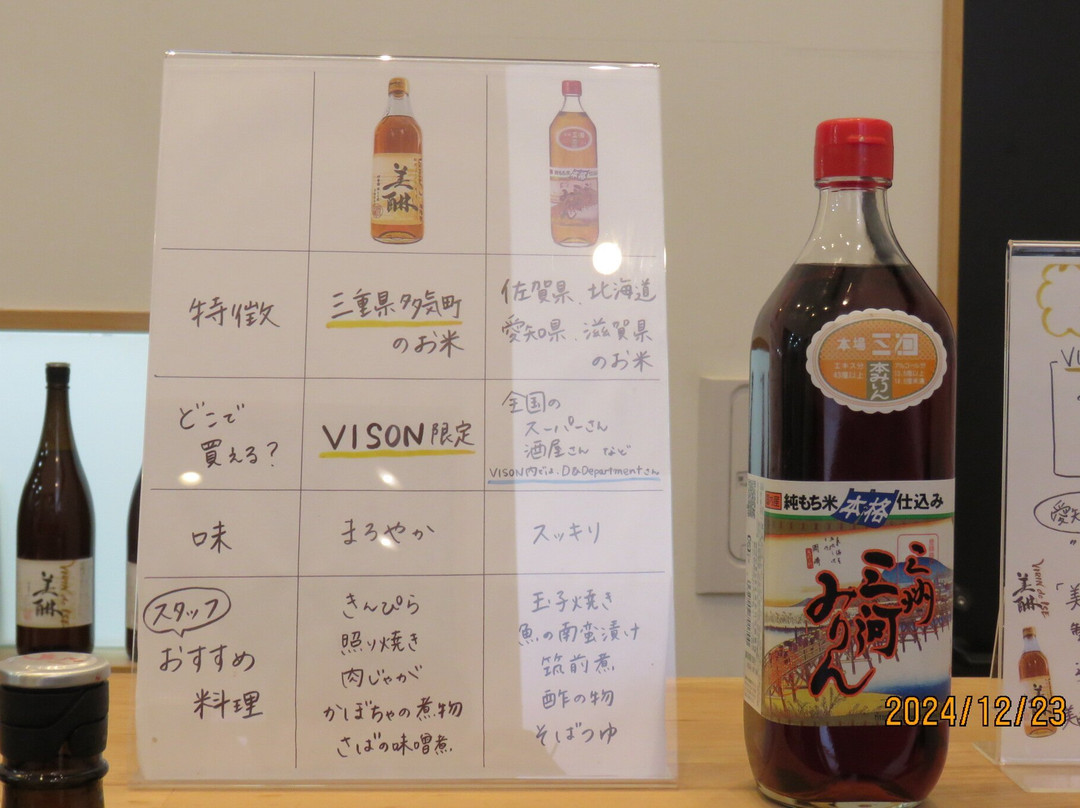 美醂
特徴
三重県多気町
のお米
佐賀県、北海道
愛知県、滋賀県
のお米
どこで
買える?
VISON限定
全国の
スーパーさん
酒屋さん など
VISON内では、D&Departmentさん
味
まろやか
スッキリ
スタッフ
おすすめ
料理
きんぴら
照り焼き
肉じゃが
かぼちゃの煮物
さばの味噌煮
玉子焼き
魚の南蛮漬け
筑前煮
酢の物
そばつゆ
美醂
本場 三河
本みりん
エキス分
アルコール分
純もち米 本格 仕込み
三州
三河
みりん
2024/12/23
美醂